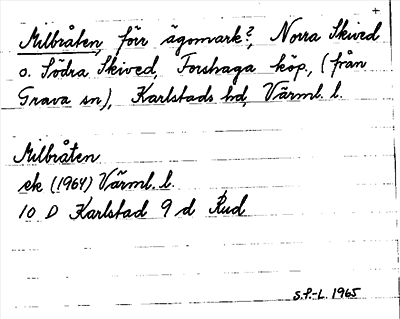 +
Milbråten, förr ägomark?, Norra Skived
o. Södra Skived, Forshaga köp., (från
Grava sn), Karlstads hd, Värml. l.
Milbråten
ek (1964) Värml. l.
10 D Karlstad 9 d Rud
S.P-L. 1965